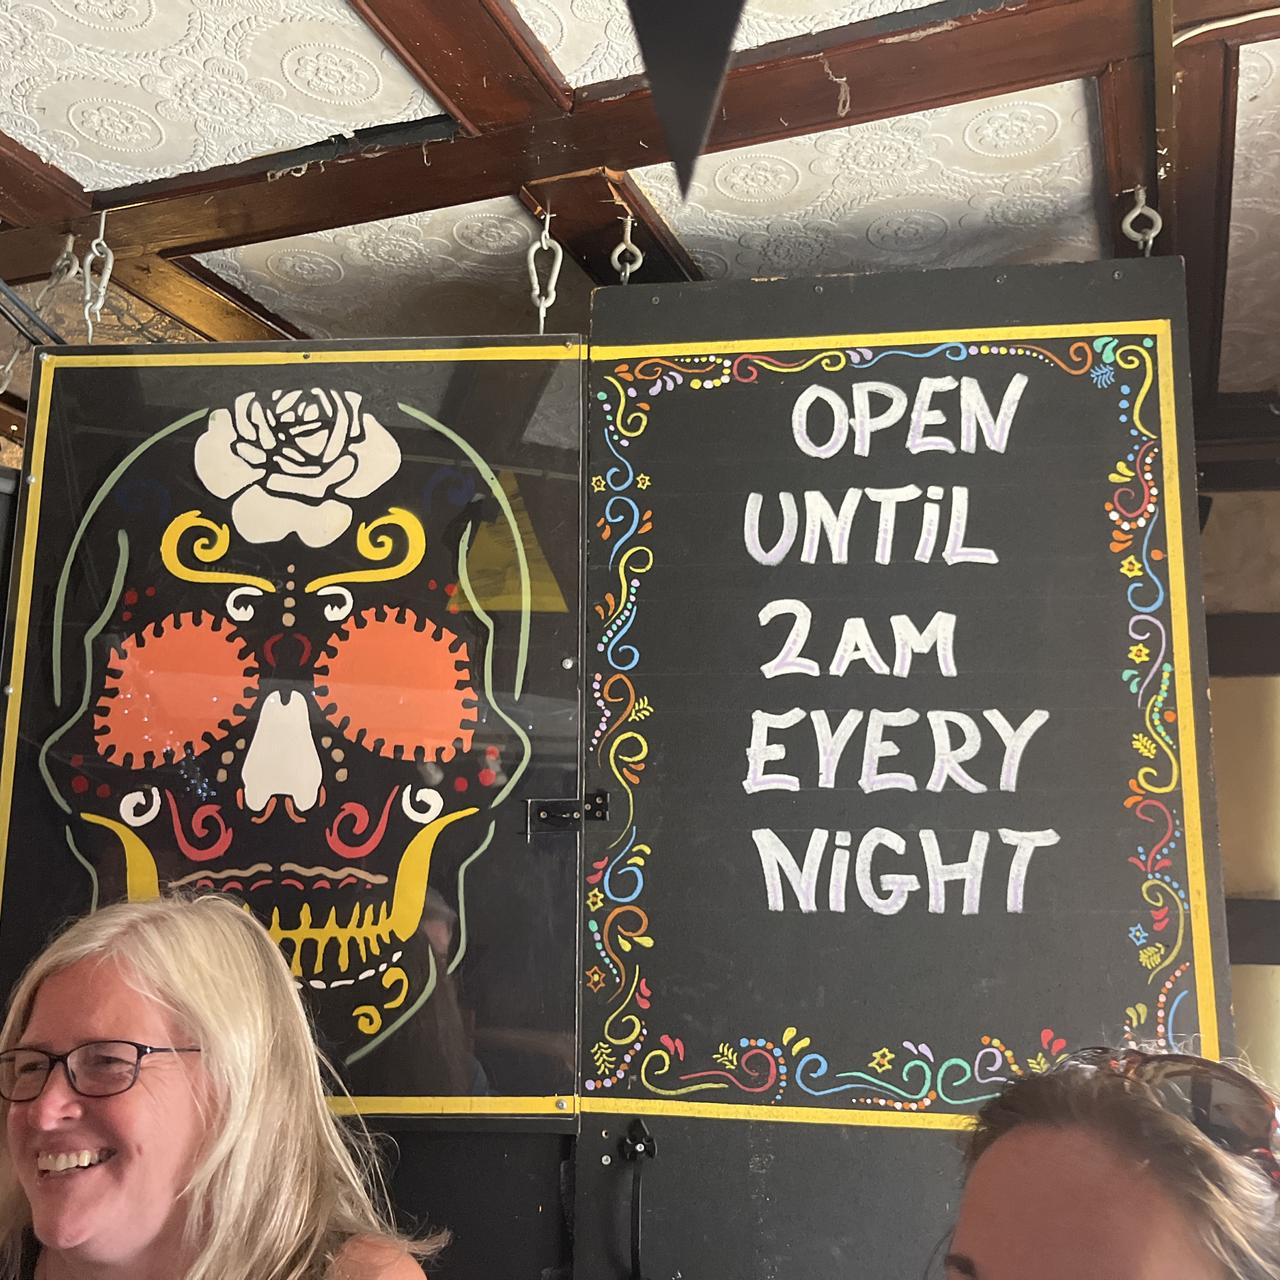 OPEN
UNTiL
2AM
EVERY
NiGHT